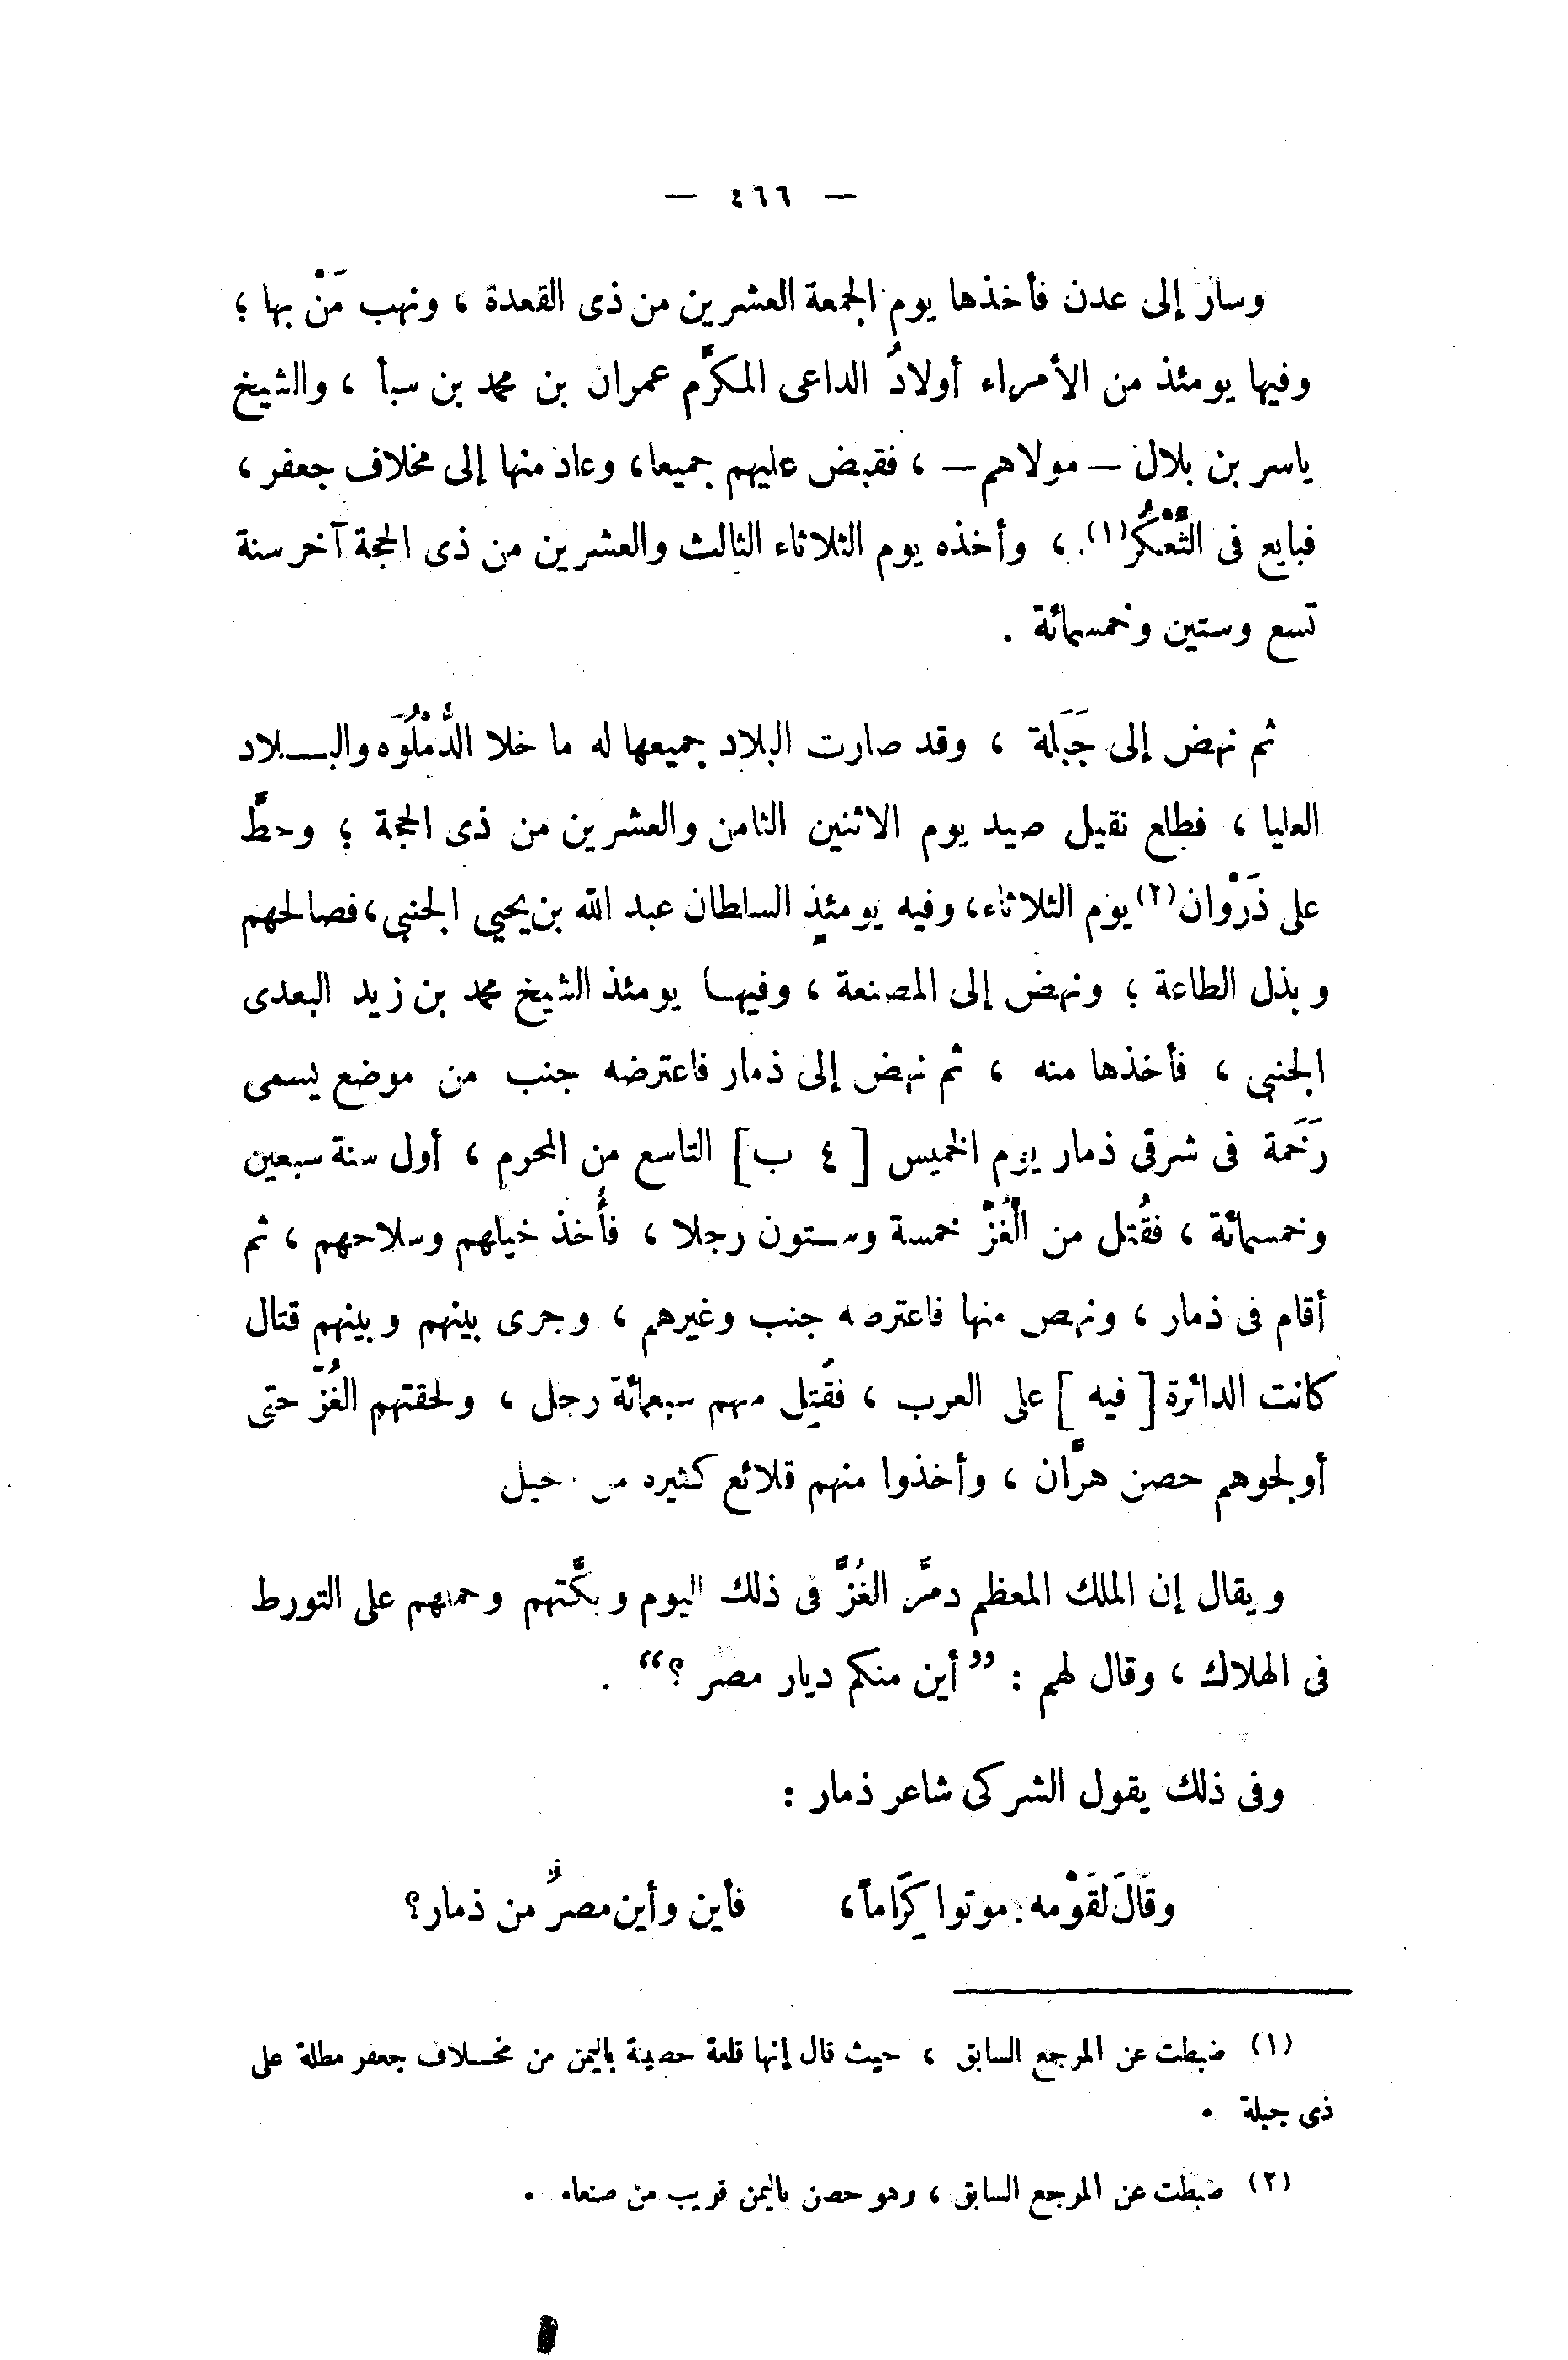 — ٤٦٦ —
وسار إلى عدن فأخذها يوم الجمعة العشرين من ذى القعدة ، ونهب مَنْ بها ؛
وفيها يومئذ من الأمراء أولادُ الداعى المكرَّم عمران بن محمد بن سبأ ، والشيخ
ياسر بن بلال — مولاهم — ، فقبض عليهم جميعا ، وعاد منها إلى مخلاف جعفر ،
فبايع فى التَّعْكُر(١) ، وأخذه يوم الثلاثاء الثالث والعشرين من ذى الحجة آخر سنة
تسع وستين وخمسمائة .
ثم نهض إلى جَبَلة ، وقد صارت البلاد جميعها له ما خلا الدُّمْلُوَه والبـلاد
العليا ، فطلع نقيل صيد يوم الاثنين الثامن والعشرين من ذى الحجة ؛ وحطَّ
على ذَرْوان(٢) يوم الثلاثاء ، وفيه يومئذٍ السلطان عبد الله بن يحيي الجنبي ، فصالحهم
وبذل الطاعة ؛ ونهض إلى المصنعة ، وفيها يومئذ الشيخ محمد بن زيد البعدى
الجنبي ، فأخذها منه ، ثم نهض إلى ذمار فاعترضه جنب من موضع يسمى
رَخَمة فى شرقى ذمار يوم الخميس [ ٤ ب ] التاسع من المحرم ، أول سنة سبعين
وخمسمائة ، فقُتل من الْغُزّ خمسة وستون رجلا ، فأُخذ خيلهم وسلاحهم ، ثم
أقام فى ذمار ، ونهض منها فاعترضه جنب وغيرهم ، وجرى بينهم وبينهم قتال
كانت الدائرة [ فيه ] على العرب ، فقُتِل منهم سبعمائة رجل ، ولحقتهم الغُزّ حتى
أولجوهم حصن هرَّان ، وأخذوا منهم قلائع كثيره من خيل
ويقال إن الملك المعظم دمَّر الغُزَّ فى ذلك اليوم وبكَّتهم وحملهم على التورط
فى الهلاك ، وقال لهم : ”أين منكم ديار مصر ؟“ .
وفى ذلك يقول الشركى شاعر ذمار :
وقَالَ لقَوْمه : موتوا كِرَاماً ، فأين وأين مصرٌ من ذمار ؟
(١) ضبطت عن المرجع السابق ، حيث قال إنها قلعة حصينة باليمن من مخـلاف جعفر مطلة على
ذى جبلة .
(٢) ضبطت عن المرجع السابق ، وهو حصن باليمن قريب من صنعاء .